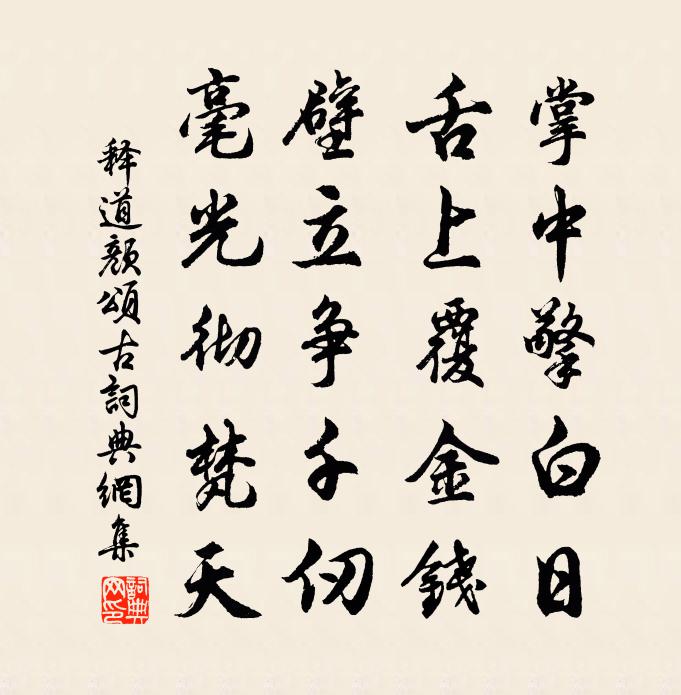 掌中擎白日
舌上覆金錢
壁立争千仞
毫光彻梵天
释道颜頌古詞典網集
詞典
网印